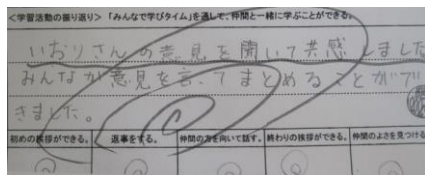 <学習活動の振り返り>「みんなで学びタイム」を通して、仲間と一緒に学ぶことができる。
いおりさんの意見を聞いて共感しました
みんなが意見を言ってまとめることがで
きました。
初めの挨拶ができる。 返事をする。 仲間の方を向いて話す。 終わりの挨拶ができる。 仲間のよさを見つける